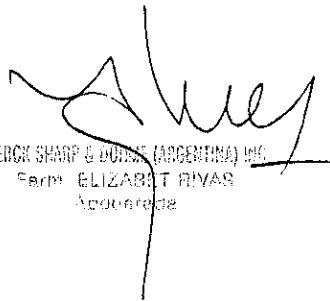 MERCK SHARP & DOHME (ARGENTINA) INC.
Farm. ELIZABET RIVAS
Apoderada